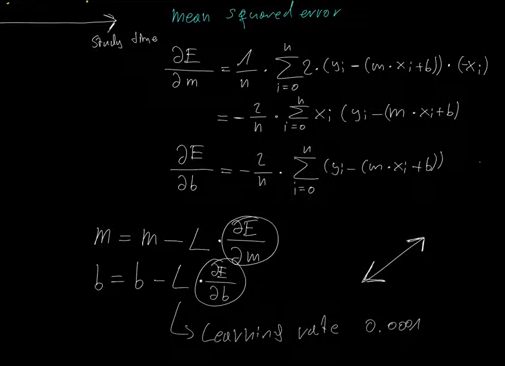 mean squared error
Study time
∂E/∂m = 1/n · ∑_{i=0}^{n} 2 · (y_i − (m · x_i + b)) · (−x_i)
= − 2/n · ∑_{i=0}^{n} x_i (y_i − (m · x_i + b)
∂E/∂b = − 2/n · ∑_{i=0}^{n} (y_i − (m · x_i + b))
m = m − L · ∂E/∂m
b = b − L · ∂E/∂b
↳ Learning rate 0.0001